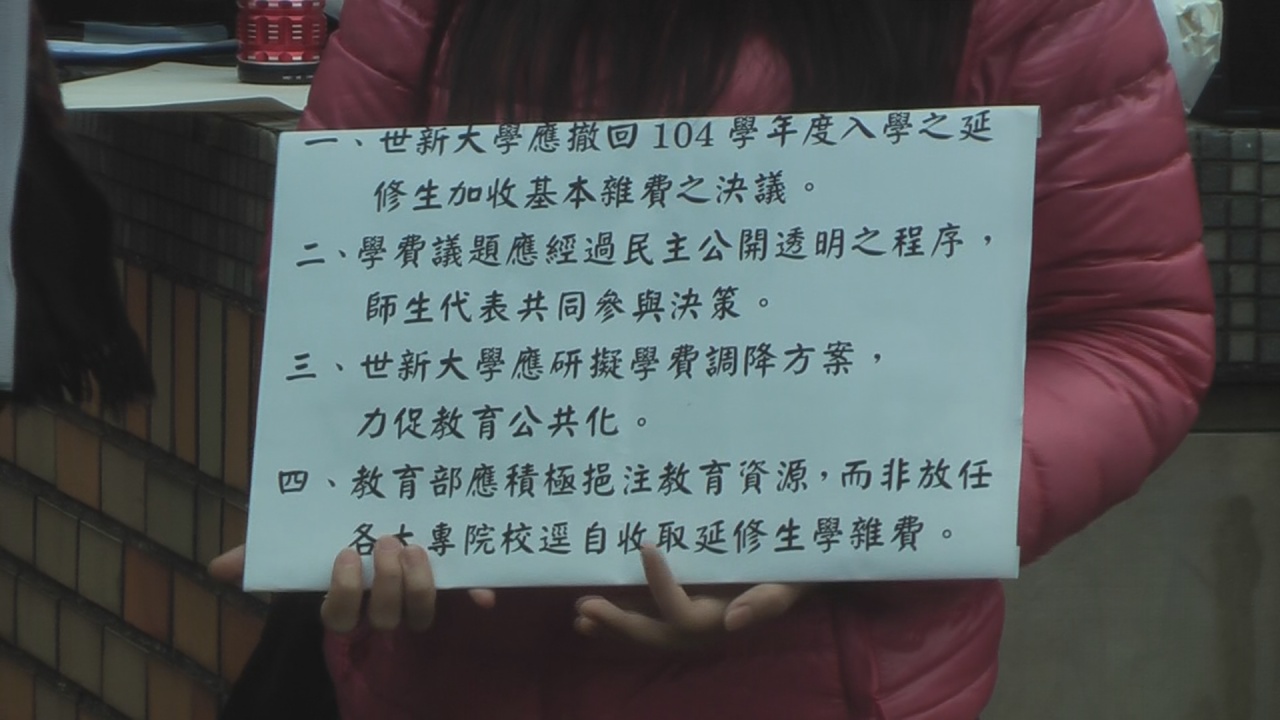 一、世新大學應撤回104學年度入學之延
修生加收基本雜費之決議。
二、學費議題應經過民主公開透明之程序，
師生代表共同參與決策。
三、世新大學應研擬學費調降方案，
力促教育公共化。
四、教育部應積極挹注教育資源，而非放任
各大專院校逕自收取延修生學雜費。